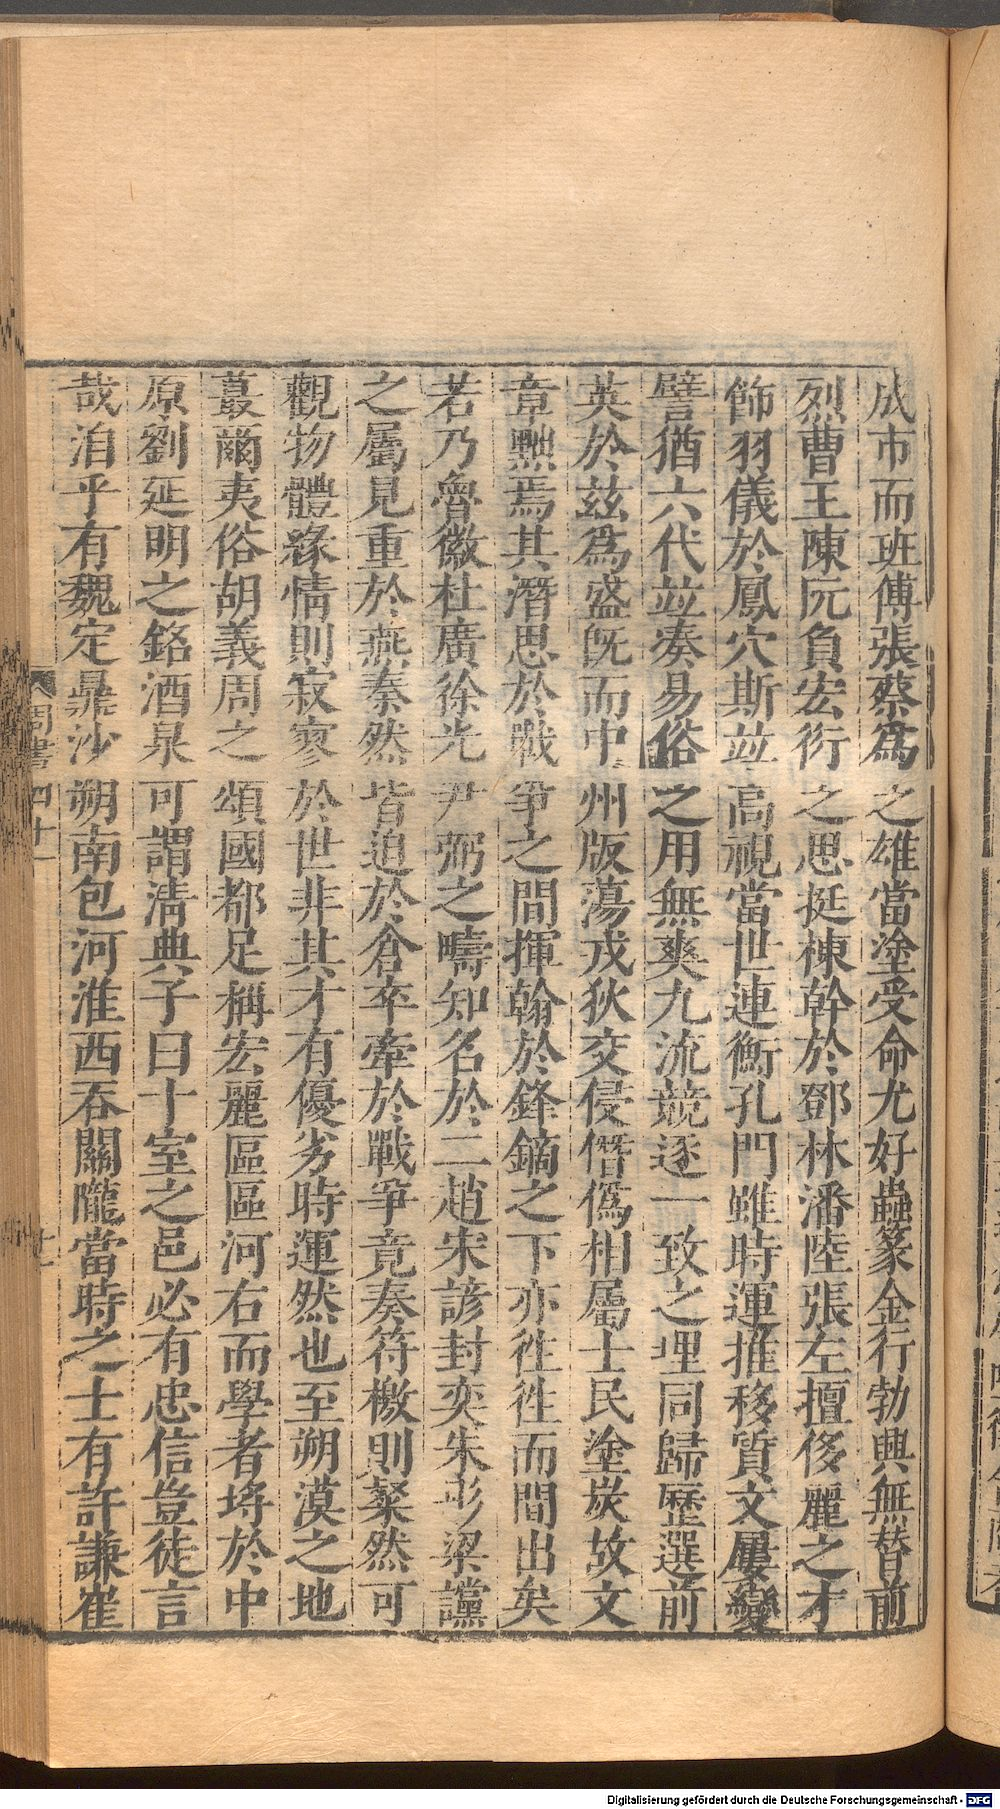 成市而班傅張蔡爲之雄當塗受命尤好蟲篆金行勃興無替前
烈曹王陳阮負宏衍之思挺棟幹於鄧林潘陸張左擅侈麗之才
飾羽儀於鳳穴斯並高視當世連衡孔門雖時運推移質文屢變
譬猶六代並湊易俗之用無爽九流競逐一致之理同歸歷選前
英於兹爲盛旣而中州版蕩戎狄交侵僭僞相屬士民塗炭故文
章黜焉其潛思於戰爭之間揮翰於鋒鏑之下亦徃徃而間出矣
若乃魯徽杜廣徐光尹弼之疇知名於二趙宋諺封奕朱彤梁讜
之屬見重於燕秦然皆迫於倉卒牽於戰爭竟奏符檄則粲然可
觀物體緣情則寂寥於世非其才有優劣時運然也至朔漠之地
蕞爾夷俗胡義周之頌國都足稱宏麗區區河右而學者埒於中
原劉延明之銘酒泉可謂淸典子曰十室之邑必有忠信豈徒言
哉洎乎有魏定鼎沙朔南包河淮西吞關隴當時之士有許謙崔
周書四十一
廿一
Digitalisierung gefördert durch die Deutsche Forschungsgemeinschaft - DFG